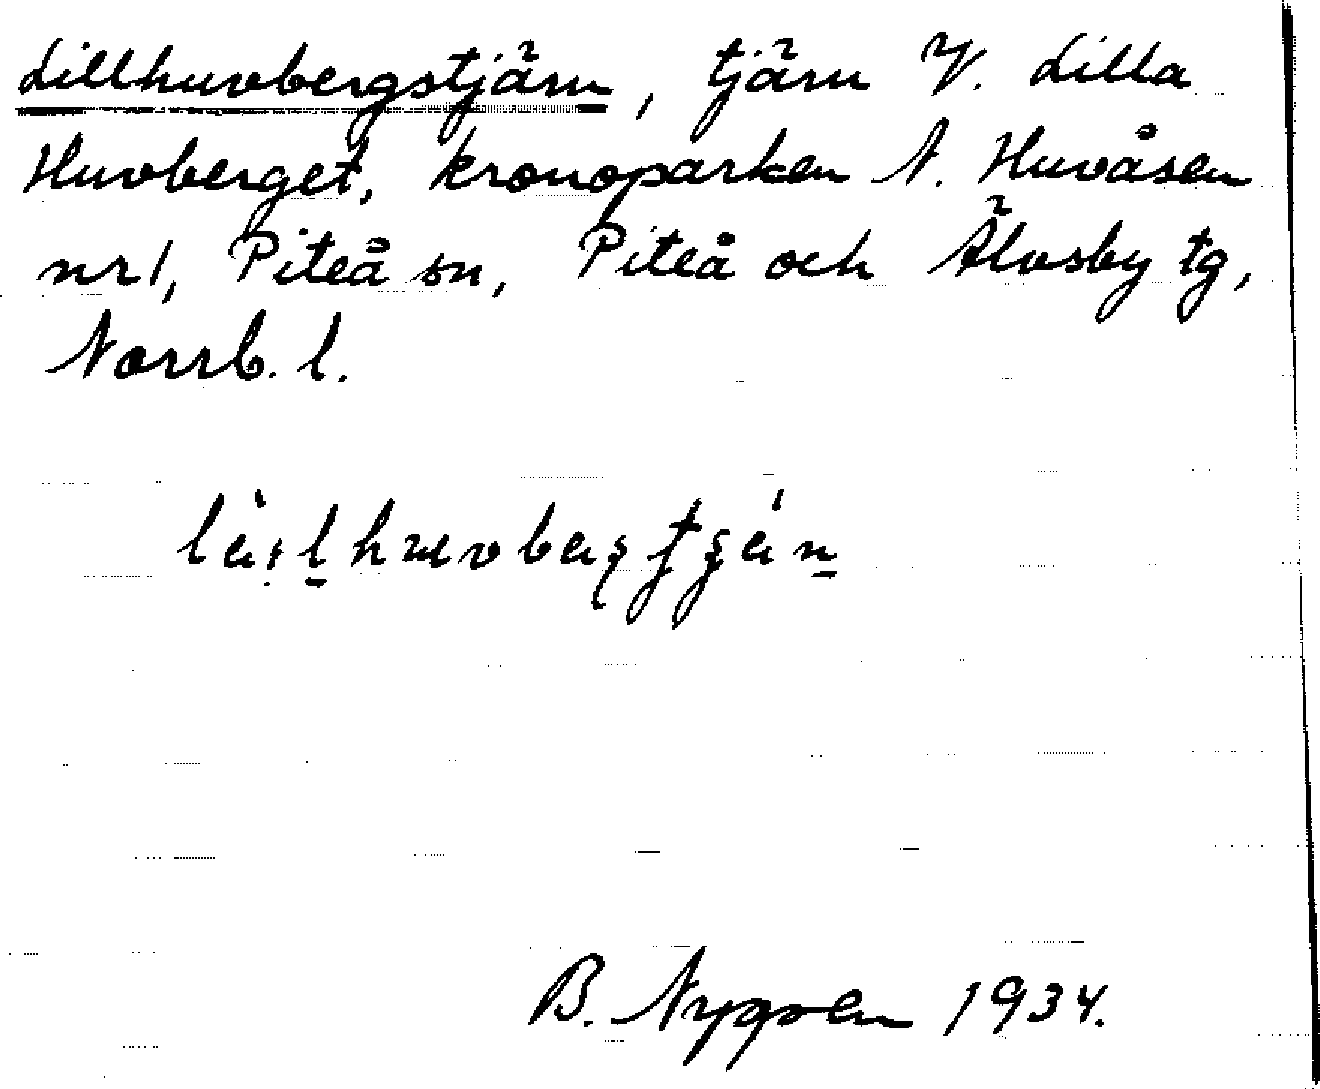 Lillhuvbergstjärn, tjärn V. Lilla
Huvberget, kronoparken N. Huvåsen
nr 1, Piteå sn, Piteå och Älvsby tg,
Norrb. l.
B. Nygren 1934.